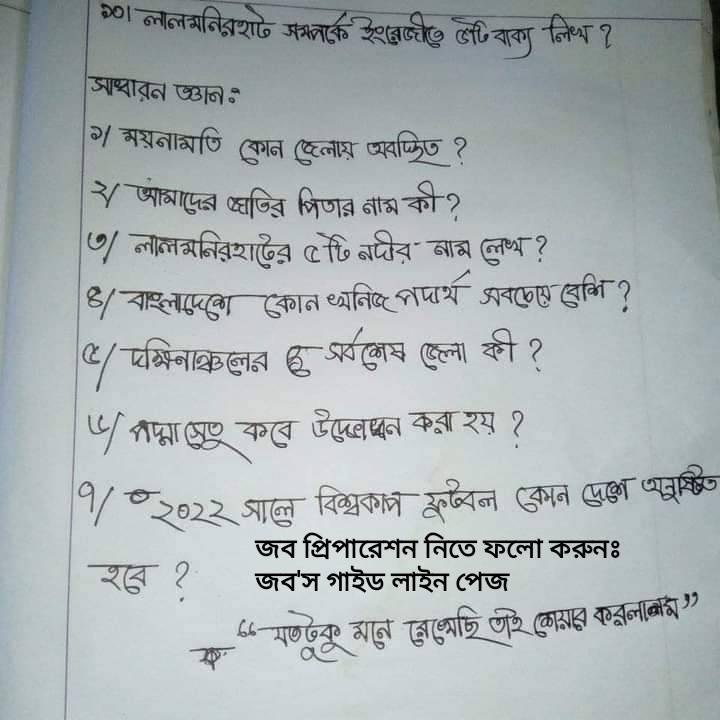 ১০। লালমনিরহাট সম্পর্কে ইংরেজীতে ৫টি বাক্য লিখ ?
সাধারন জ্ঞান:
১/ ময়নামতি কোন জেলায় অবস্থিত ?
২/ আমাদের জাতির পিতার নাম কী ?
৩/ লালমনিরহাটের ৫টি নদীর নাম লেখ ?
৪/ বাংলাদেশে কোন খনিজ পদার্থ সবচেয়ে বেশি ?
৫/ দক্ষিনাঞ্চলের সর্বশেষ জেলা কী ?
৬/ পদ্মা সেতু কবে উদ্বোধন করা হয় ?
৭/ ২০২২ সালে বিশ্বকাপ ফুটবল কোন দেশে অনুষ্ঠিত
হবে ?
জব প্রিপারেশন নিতে ফলো করুনঃ
জব'স গাইড লাইন পেজ
“যতটুকু মনে রেখেছি তাই শেয়ার করলাম”